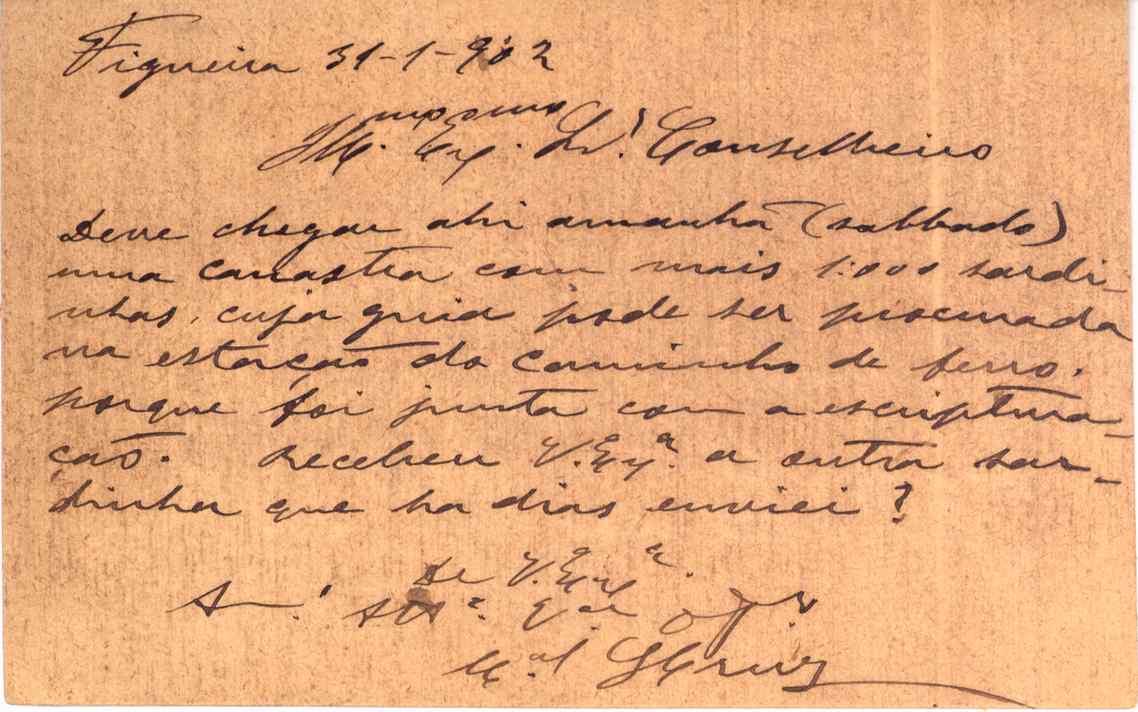 Figueira 31-1-902
Illmo. Exmo. Sr. Conselheiro
Deve chegar ahi amanhã (sabbado)
uma canastra com mais 1:000 sardi-
nhas, cuja guia pode ser procurada
na estação do caminho de ferro.
porque foi junta com a escriptura-
ção. Recebeu V. Exa. a outra sar-
dinha que ha dias enviei?
De V. Exa.